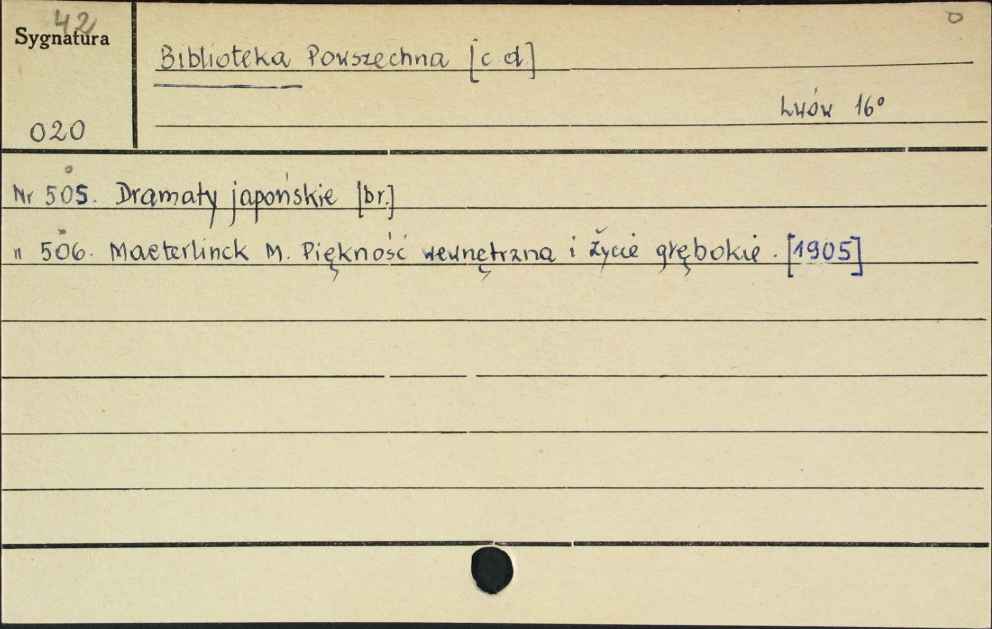 42
Sygnatura
Biblioteka Powszechna [c d.]
Lwów 16°
020
Nr 505. Dramaty japońskie [br.]
" 506. Maeterlinck M. Piękność wewnętrzna i życie głębokie. [1905]